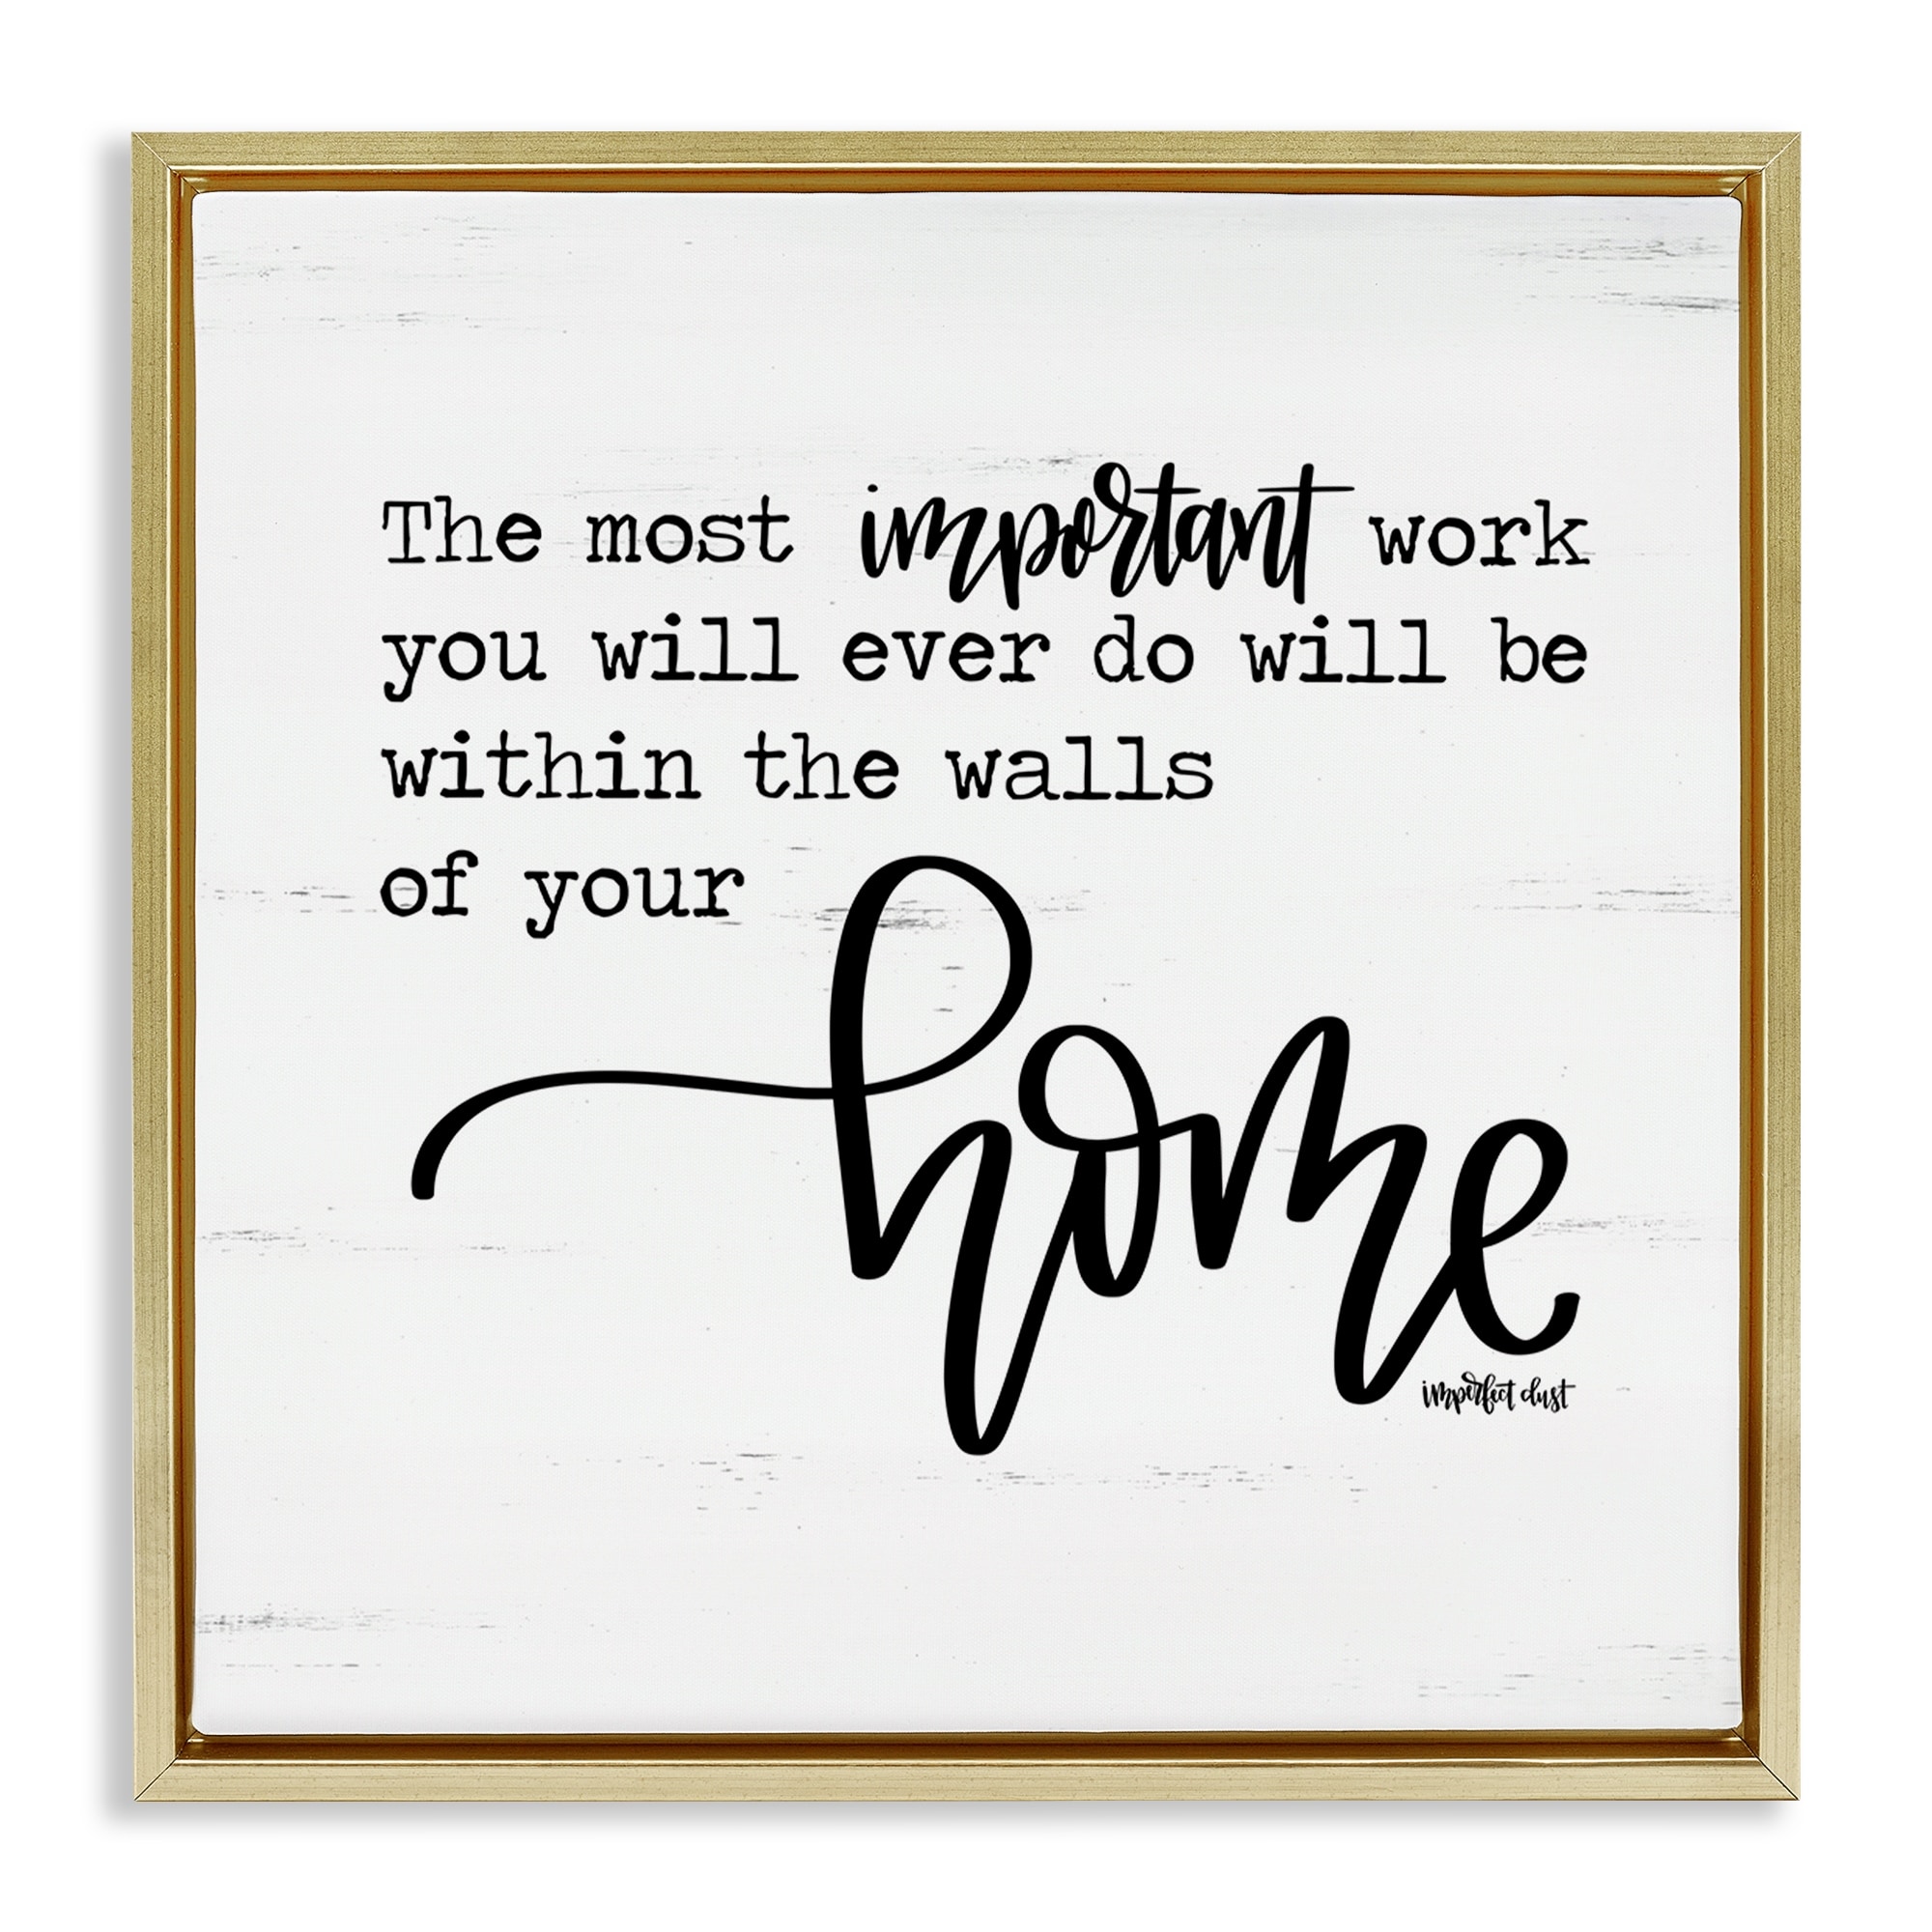 The most important work
you will ever do will be
within the walls
of your
home
imperfect dust